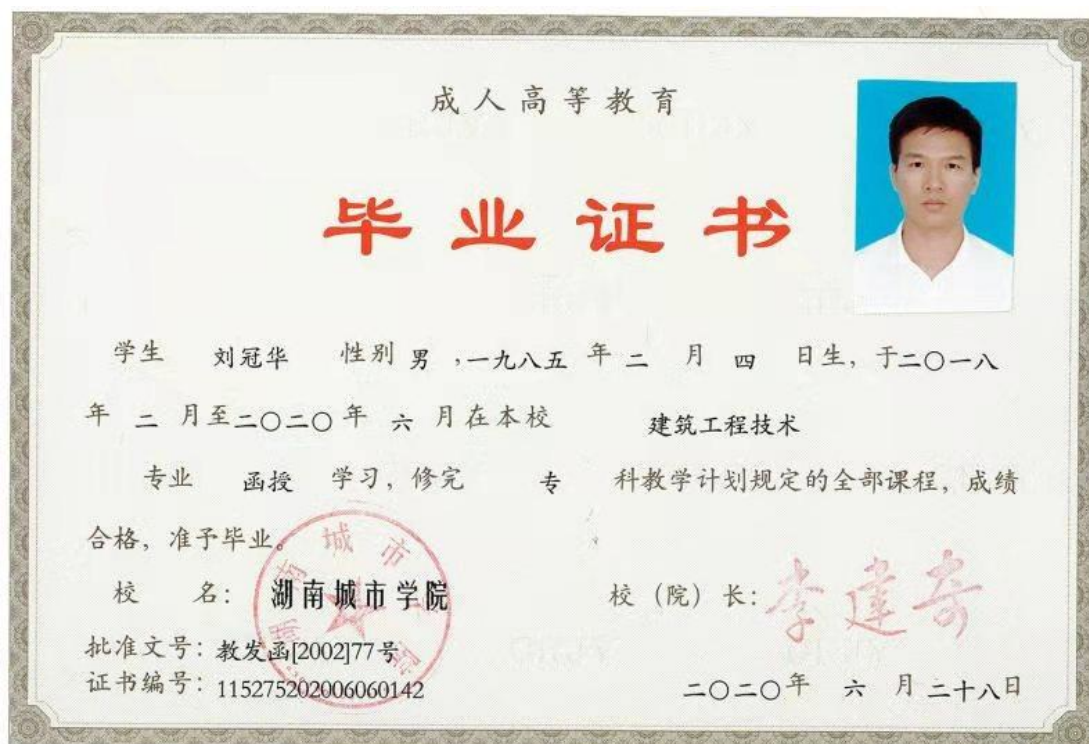 成人高等教育
毕业证书
学生 刘冠华 性别 男 ,一九八五 年 二 月 四 日生, 于二〇一八
年 二 月至二〇二〇年 六 月在本校 建筑工程技术
专业 函授 学习, 修完 专 科教学计划规定的全部课程, 成绩
合格, 准予毕业。
校 名: 湖南城市学院
校（院）长: 李建奇
批准文号: 教发函[2002]77号
证书编号: 115275202006060142
二〇二〇年 六 月 二十八日
湖南城市学院